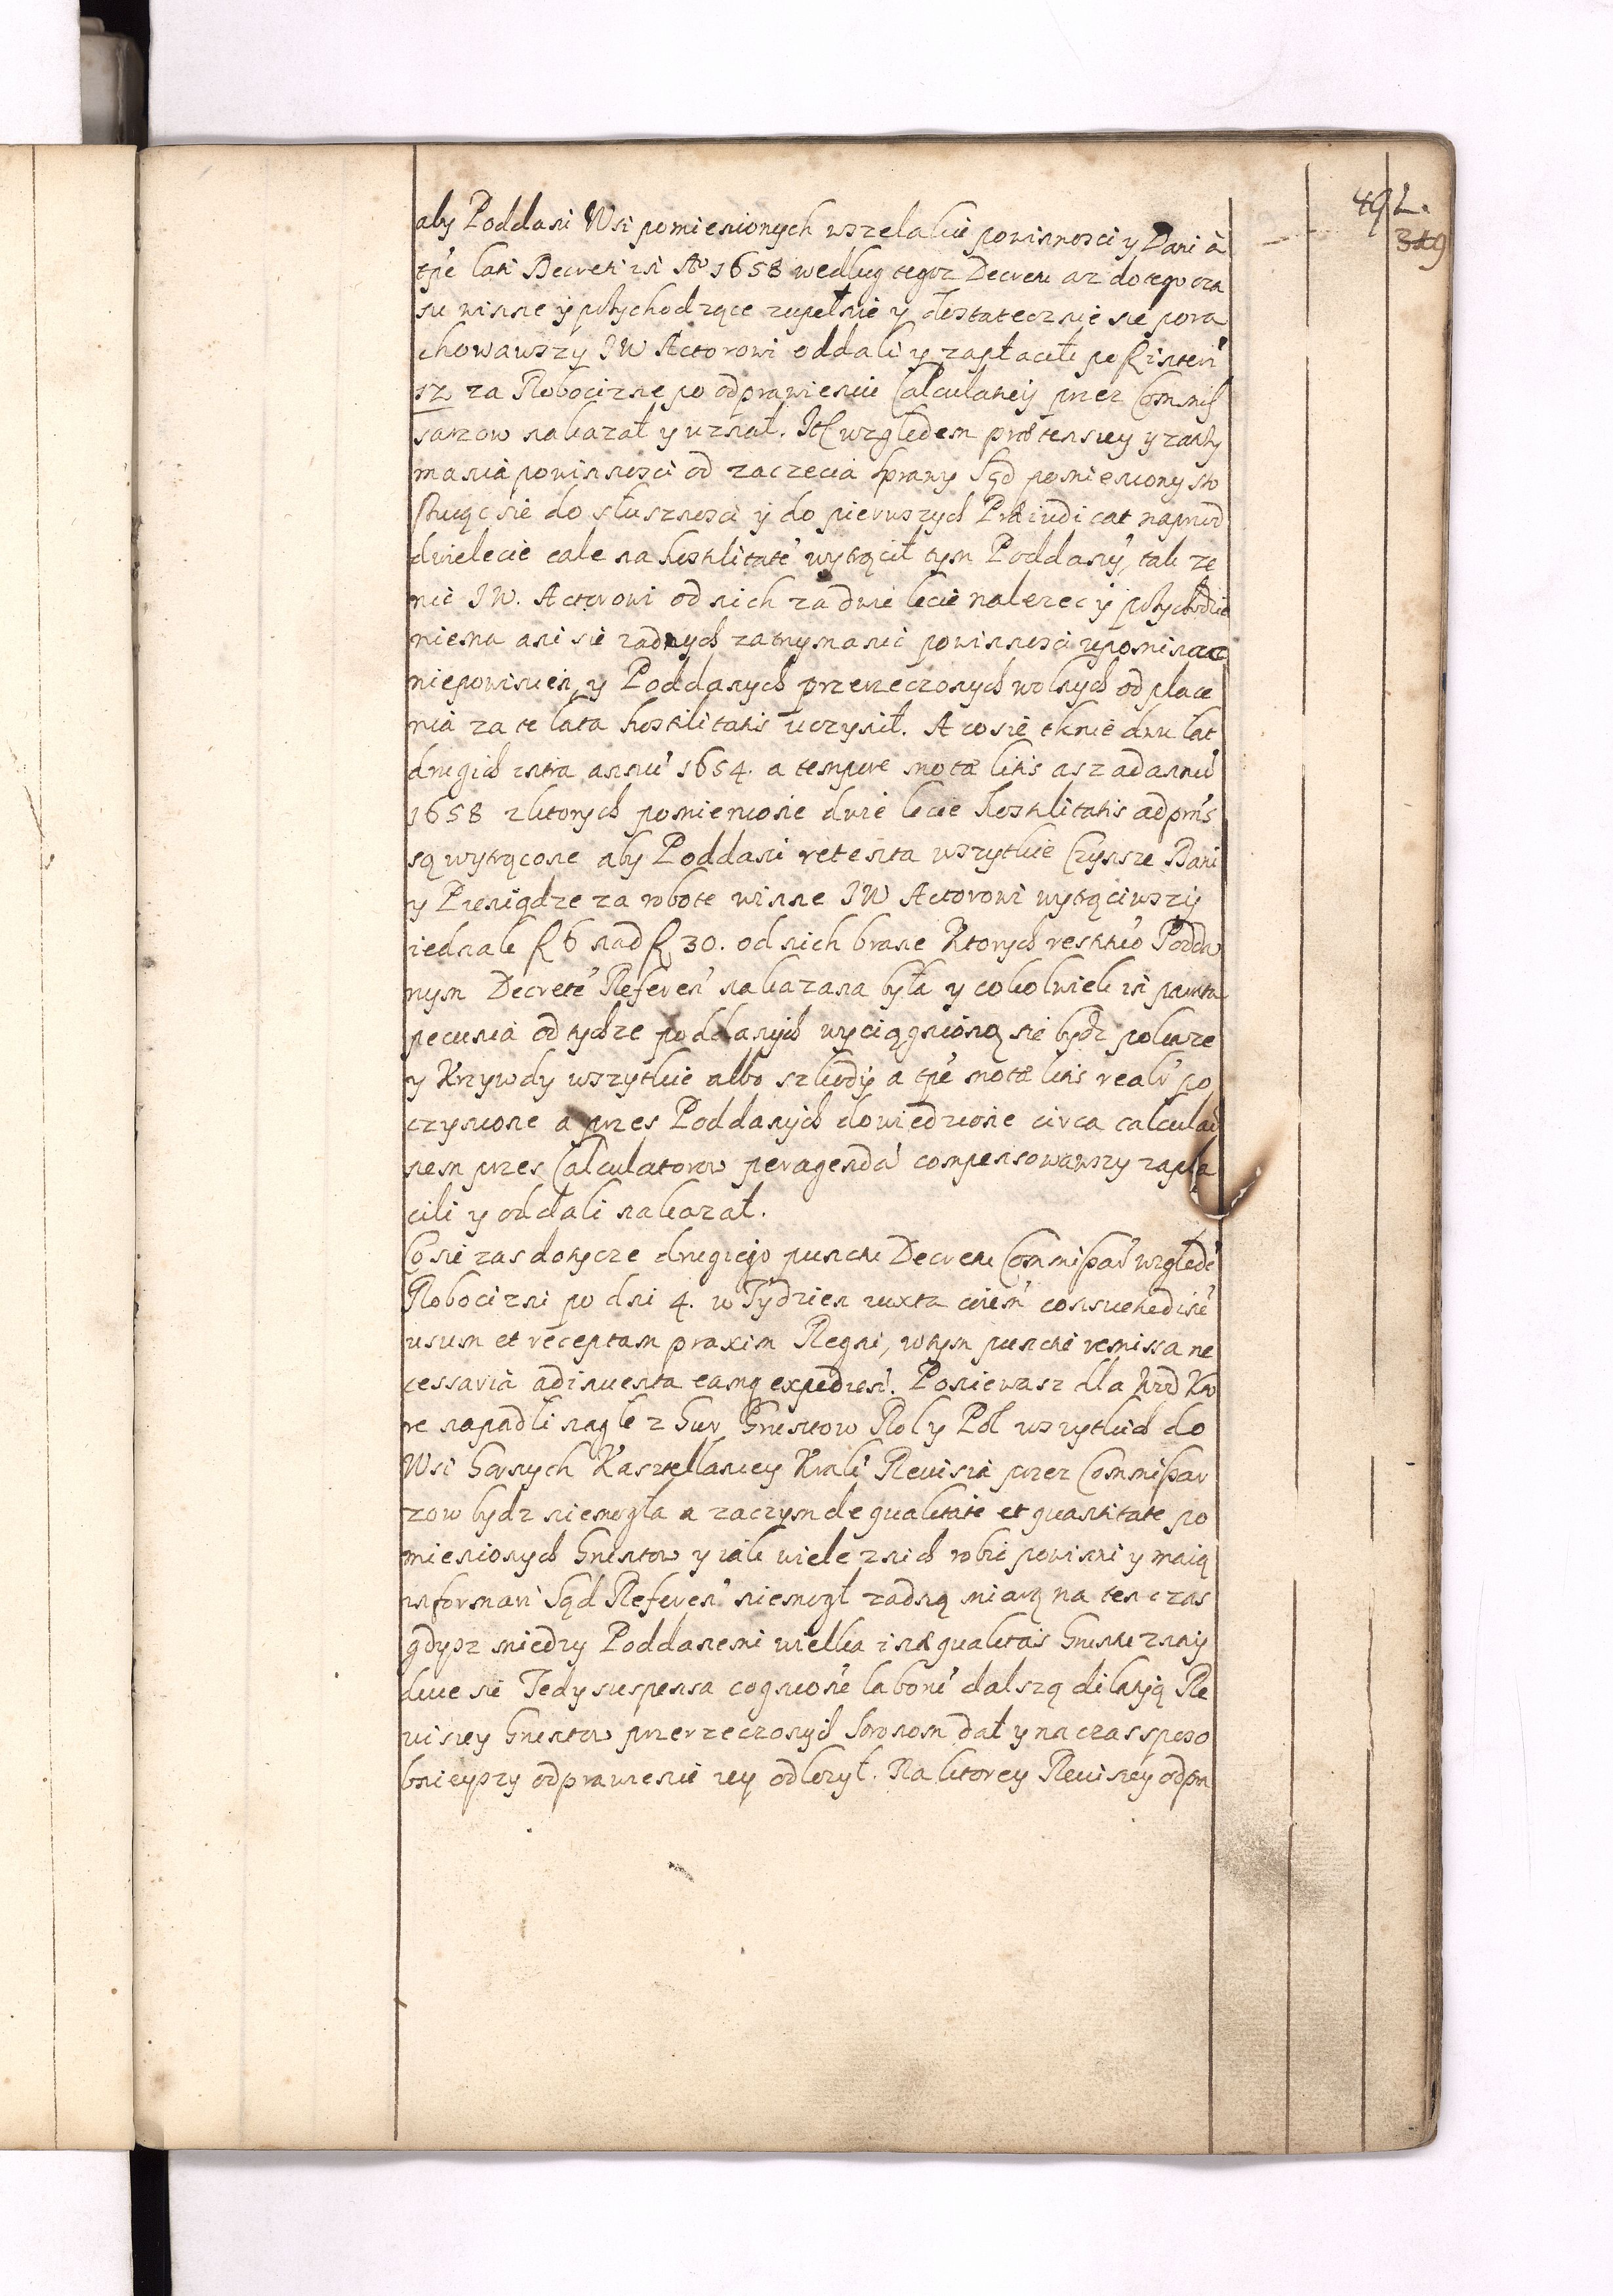 49 L.
349
aby Poddani Wsi pomienionych wszelakie powinnosci y Dani à
tpe lati Decreti in Ao 1658 według tegoz Decretu az do tego cza
su winne y przychodzące zupełnie y dostatecznie sie pora
chowawszy JW Actorowi oddali y zapłacili po f
12 za Robocizne po odprawieniu Calculatiey przez Commis
sarzow nakazał y uznał. względem prætensiey y zatrzy
mania powinnosci od zaczecia sprawy Sąd pomieniony sto
suiąc sie do słusznosci y do pierwszych Præiudicat naprzod
dwielecie cale na hostilitate wytrącił tym Poddany, tak ze
nic JW. Actorowi od nich za dwie lecie nalezec y przychodzic
niema ani sie zadnych zatrzymanie powinnosci upominac
niepowinien, y Poddanych przerzeczonych wolnych od place
nia za te lata hostilitatis uczynił. A co sie tknie dwu lat
drugich intra annu 1654. a tempore motæ litis asz ad annu
1658 z ktorych pomienione dwie lecie hostilitatis ad pms
są wytrącone aby Poddani retenta wszytkie Czynsze Dani
y Pieniądze za robote winne JW Actorowi wytrąciwszy
iednak f 6 nad f 30. od nich brane Ktorych restitio Podda
nym Decrete Referen nakazana była y cokolwiek in parata
pecunia od tychze poddanych wyciągnioną sie bydz pokaze
y Krzywdy wszytkie albo szkody a tpe motæ litis realr po
czynione a przes Poddanych dowiedzione circa calculao
nem przes Calculatorow peragenda compensowawszy zapła
cili y oddali nakazał.
Co sie zas dotycze drugiego punctu Decretu Commissar względe
Robocizni po dni 4. w Tydzien iuxta coem consuetudine
usum et receptam praxim Regni, wtym puncte remissa ne
cessaria adinuenta eamq expedien. Poniewasz dla
re napadli nagle z Gur Gruntow Rol y Pol wszytkich do
Wsi Gornych Kasztellaniey Kral Revisia przez Commissar
zow bydz niemogła a zaczym de qualitate et quantitate po
mienionych Gruntow y iak wiele z nich robic powinni y maią
informari Sąd Referen niemogł zadną miarą na ten czas
gdysz miedzy Poddanemi wielka inæqualitas Gruntu znay
duie sie Tedy suspensa cognione labori dalszą dilatią Re
visiey Gruntow przerzeczonych stronom dał y na czas sposo
bnieyszy odprawienie iey odlozył. Na ktorey Revisiey odpra